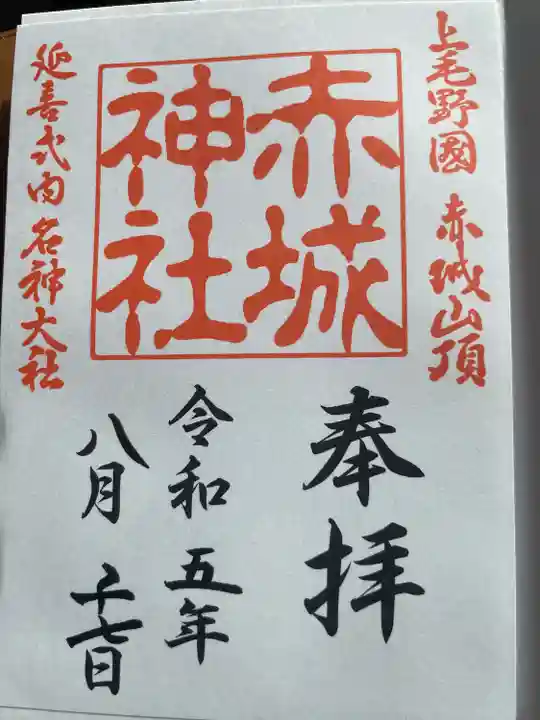 上毛野國 赤城山頂
赤城
神社
延喜式内名神大社
奉拝
令和五年
八月十七日